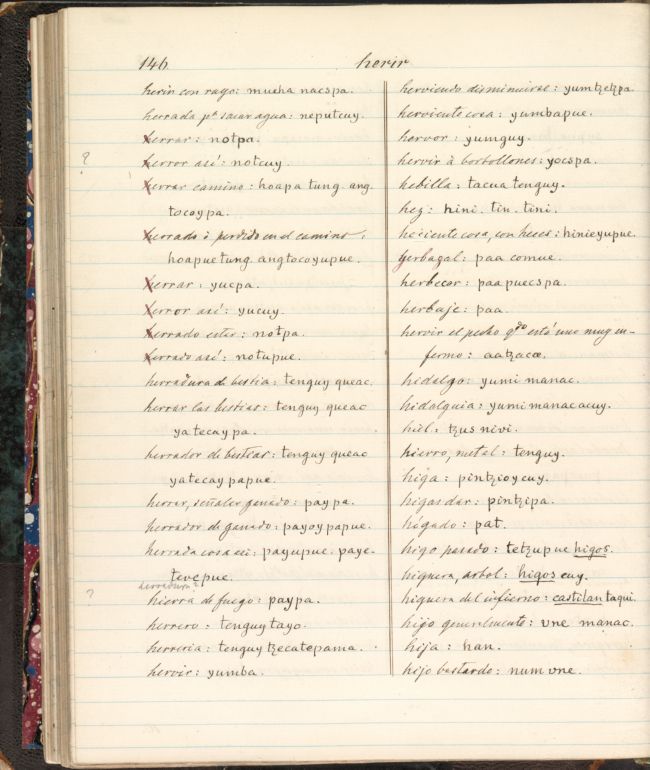 146 herir
herir con rayo: mucha nacspa.
herrada pa sacar agua: neputcuy.
herrar: notpa.
?
herror así: notcuy.
herrar camino: hoapa tung. ang.
tocoypa.
herrado ò perdido en el camino:
hoapuetung. angtocoyupue.
herrar: yucpa.
herror así: yucuy.
herrado estar: notpa.
herrado así: notupue.
herradura de bestia: tenguy queac.
herrar las bestias: tenguy queac
yatecaypa.
herrador de bestias: tenguy queac
yatecaypapue.
herrar, señalar ganado: paypa.
herrador de ganado: payoypapue.
herrada cosa así: payupue. paye-
tevepue.
herradura?
?
hierra de fuego: paypa.
herrero: tenguytayo.
herreria: tenguy tzecatepama.
hervir: yumba.
herviendo disminuirse: yumtzetzpa.
herviente cosa: yumbapue.
hervor: yumguy.
hervir à borbollones: yocspa.
hebilla: tacuatenguy.
hez: hini. tin. tini.
heciente cosa, con heces: hinieyupue.
yerbazal: paa comue.
herbecer: paapuecspa.
herbaje: paa.
hervir el pecho qdo está uno muy en-
fermo: aatzacæ.
hidalgo: yumi manac.
hidalguia: yumimanacacuy.
hiel: tzus nivi.
hierro, metal: tenguy.
higa: pintzioycuy.
higas dar: pintzipa.
hígado: pat.
higo pasado: tetzupue higos.
higuera, arbol: higos cuy.
higuera del infierno: castilan taqui.
hijo generalmente: vne manac.
hija: han.
hijo bastardo: numvne.